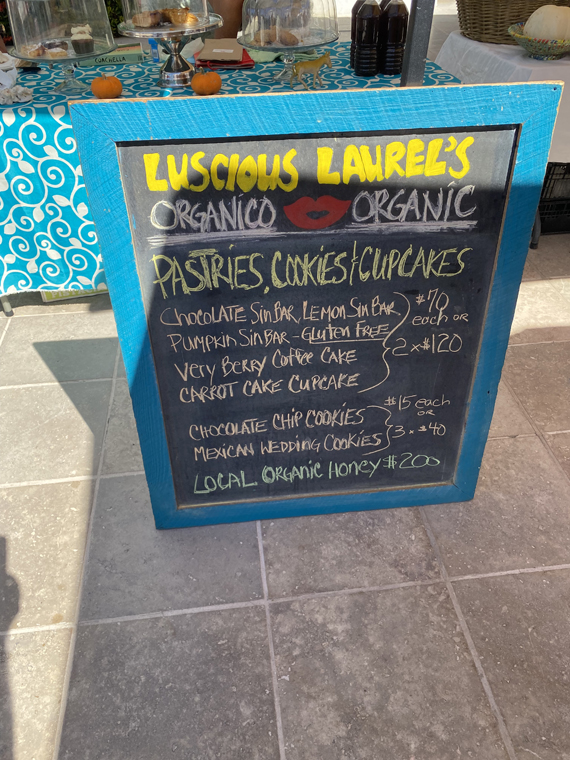 CUACHELLA
LUSCIOUS LAUREL'S
ORGANICO ORGANIC
PASTRIES, COOKIES & CUPCAKES
CHOCOLATE SIN BAR, LEMON SIN BAR
PUMPKIN SIN BAR - GLUTEN FREE
VERY BERRY COFFEE CAKE
CARROT CAKE CUPCAKE
$70
each OR
2 x $120
CHOCOLATE CHIP COOKIES
MEXICAN WEDDING COOKIES
$15 each
OR
3 x $40
LOCAL ORGANIC HONEY $200